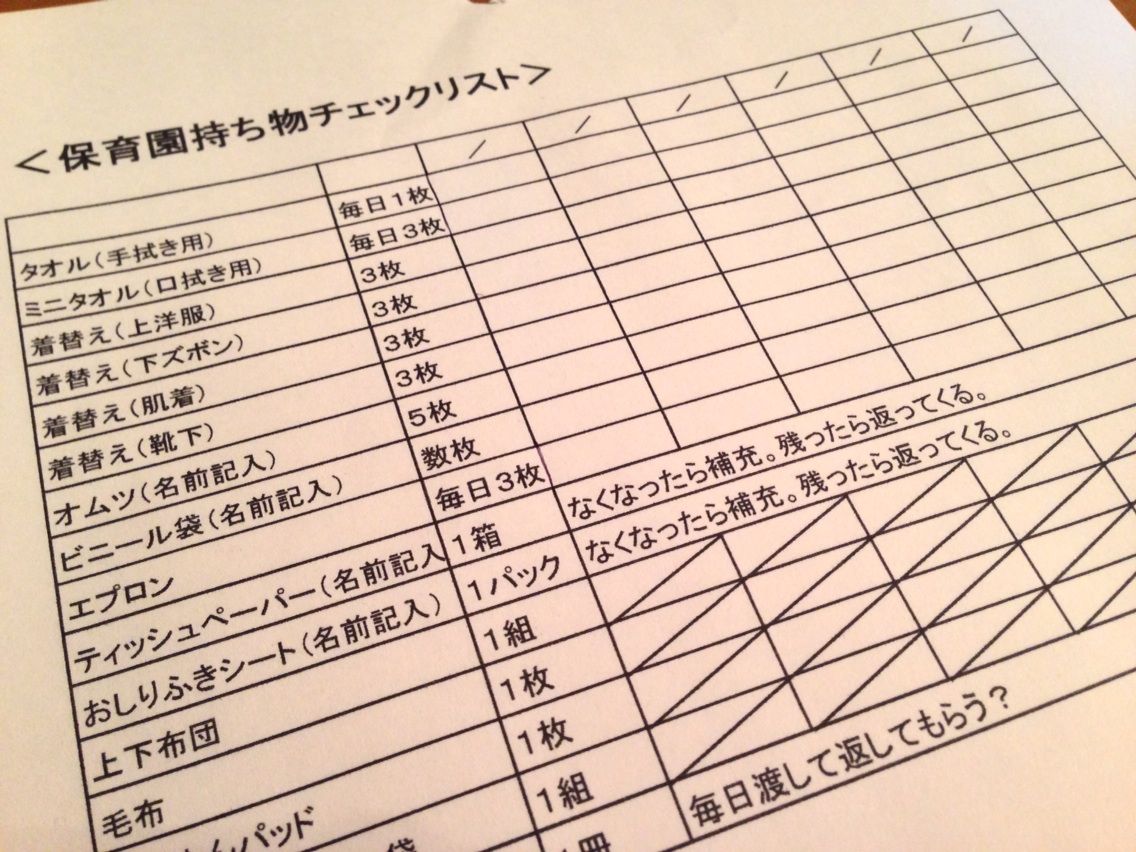 ＜保育園持ち物チェックリスト＞
/ / / / / /
タオル（手拭き用） 毎日１枚
ミニタオル（口拭き用） 毎日３枚
着替え（上洋服） ３枚
着替え（下ズボン） ３枚
着替え（肌着） ３枚
着替え（靴下） ３枚
オムツ（名前記入） ５枚
ビニール袋（名前記入） 数枚
エプロン 毎日３枚
ティッシュペーパー（名前記入 １箱 なくなったら補充。残ったら返ってくる。
おしりふきシート（名前記入） １パック なくなったら補充。残ったら返ってくる。
上下布団 １組
毛布 １枚
パッド １枚
袋 １組
１冊 毎日渡して返してもらう？